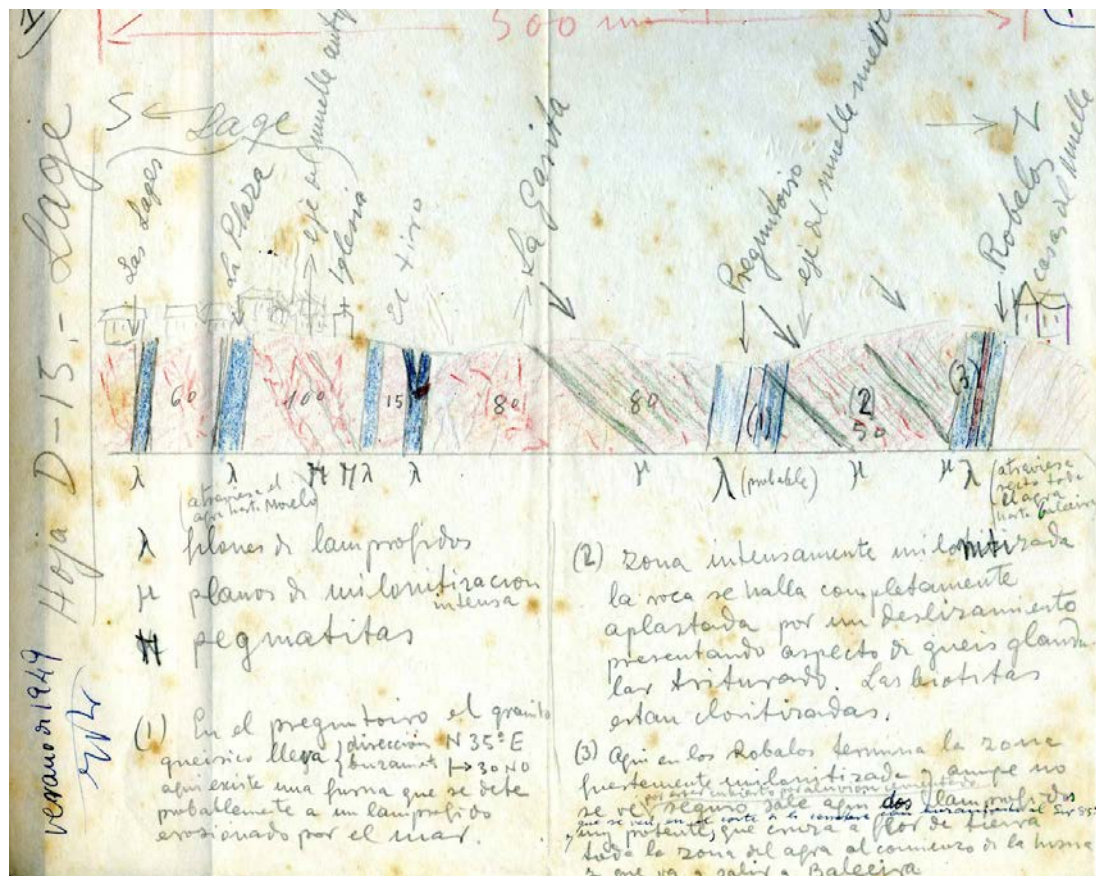 500 m
Hoja D-15.- Lage
verano di 1949
S ← Lage
Las Lages
La Plaza
eje del muelle antig
Iglesia
El tiro
La Garita
Preguntoiro
eje del muelle nuevo
N
Robalos
casas del muelle
60
100
15
80
80
(1)
(2
50
(3)
λ
λ
λ
λ
μ
λ (probable)
μ
μ
λ
(atraviesa el
agra hasta Morelo
(atraviesa
recto toda
el agra
hasta Baleeira
λ filones di lamprofidos
μ planos di milonitizacion
intensa
pegmatitas
(1) En el preguntoiro el granito
queisico lleva dirección N 35º E
buzamt 30 NO
aqui existe una furna que se debe
probablemente a un lamprofido
erosionado por el mar.
(2) zona intensamente milonitizada
la roca se halla completamente
aplastada por un deslizamiento
presentando aspecto di gneis glandu
lar triturado. Las biotitas
estan cloritizadas.
(3) Aqui en los Robalos termina la zona
fuertemente milonitizada y aunqe no
por estar cubierto por aluvion
se ve, seguro sale aqui dos lamprofidos
que se ven en el corte de la carretera con buzamiento al Sur 85º
muy potentes, que cruza a flor de tierra
toda la zona del agra al comienzo di la misma
y que va a salir a Baleeira